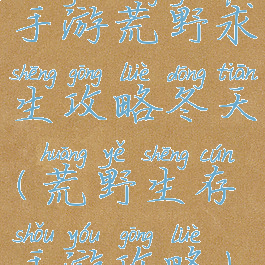 手游荒野求
shēng gōng lüè dōng tiān
生攻略冬天
huāng yě shēng cún
(荒野生存
shǒu yóu gōng lüè
手游攻略)